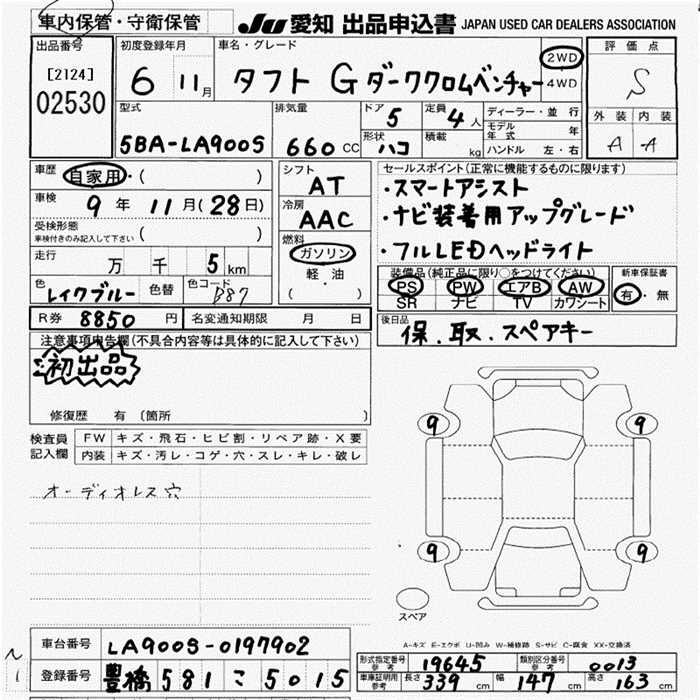 車内保管・守衛保管 JU 愛知 出品申込書 JAPAN USED CAR DEALERS ASSOCIATION
出品番号 初度登録年月 車名・グレード 評価点
[2124]
02530 6 11月 タフト G ダーククロムベンチャー 2WD 4WD S
型式 排気量 ドア 5 定員 4人 ディーラー・並行 外装 内装
5BA-LA900S 660CC 形状 ハコ 積載 kg モデル年式 年 A A
ハンドル 左・右
車歴 自家用・( ) シフト AT セールスポイント(正常に機能するものに限ります)
車検 9年 11月(28日) 冷房 AAC ・スマートアシスト
受検形態 ( ) ・ナビ装着用アップグレード
車検付きのみ記入して下さい 燃料 ガソリン ・フルLEDヘッドライト
走行 万 千 5km 軽・油 ( )
装備品(純正品に限り○をつけてください) 新車保証書
色 レイクブルー 色替 色コード B87 PS PW エアB AW 有・無
SR ナビ TV カワシート
R券 8850円 名変通知期限 月 日 後日品
保.取.スペアキー
注意事項申告欄(不具合内容等は具体的に記入して下さい)
初出品
修復歴 有 〔箇所 〕
検査員記入欄 FW キズ・飛石・ヒビ割・リペア跡・X要
内装 キズ・汚レ・コゲ・穴・スレ・キレ・破レ
オーディオレス穴
9 9
9 9
スペア
A-キズ E-エクボ U-凹み W-補修跡 S-サビ C-腐食 XX-交換済
車台番号 LA900S-0197902
登録番号 豊橋 581 こ 5015
形式指定番号 参考 19645 類別区分番号 参考 0013
車庫証明用 参考 長さ 339cm 幅 147cm 高さ 163cm